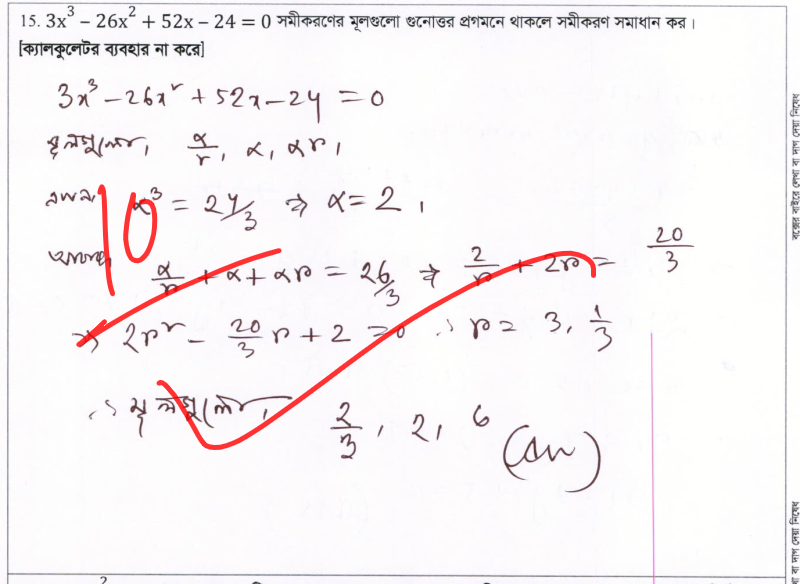 15. 3x³ − 26x² + 52x − 24 = 0 সমীকরণের মূলগুলো গুনোত্তর প্রগমনে থাকলে সমীকরণ সমাধান কর।
[ক্যালকুলেটর ব্যবহার না করে]
3x³ − 26x² + 52x − 24 = 0
মূলগুলো, α/r, α, αr,
α³ = 24/3 ⇒ α = 2,
α/r + α + αr = 26/3 ⇒ 2/r + 2r = 20/3
⇒ 2r² − 20/3 r + 2 = 0 ∴ r = 3, 1/3
∴ মূলগুলো, 2/3, 2, 6 (Ans)
10
বক্সের বাইরে লেখা বা দাগ দেয়া নিষেধ
বা দাগ দেয়া নিষেধ